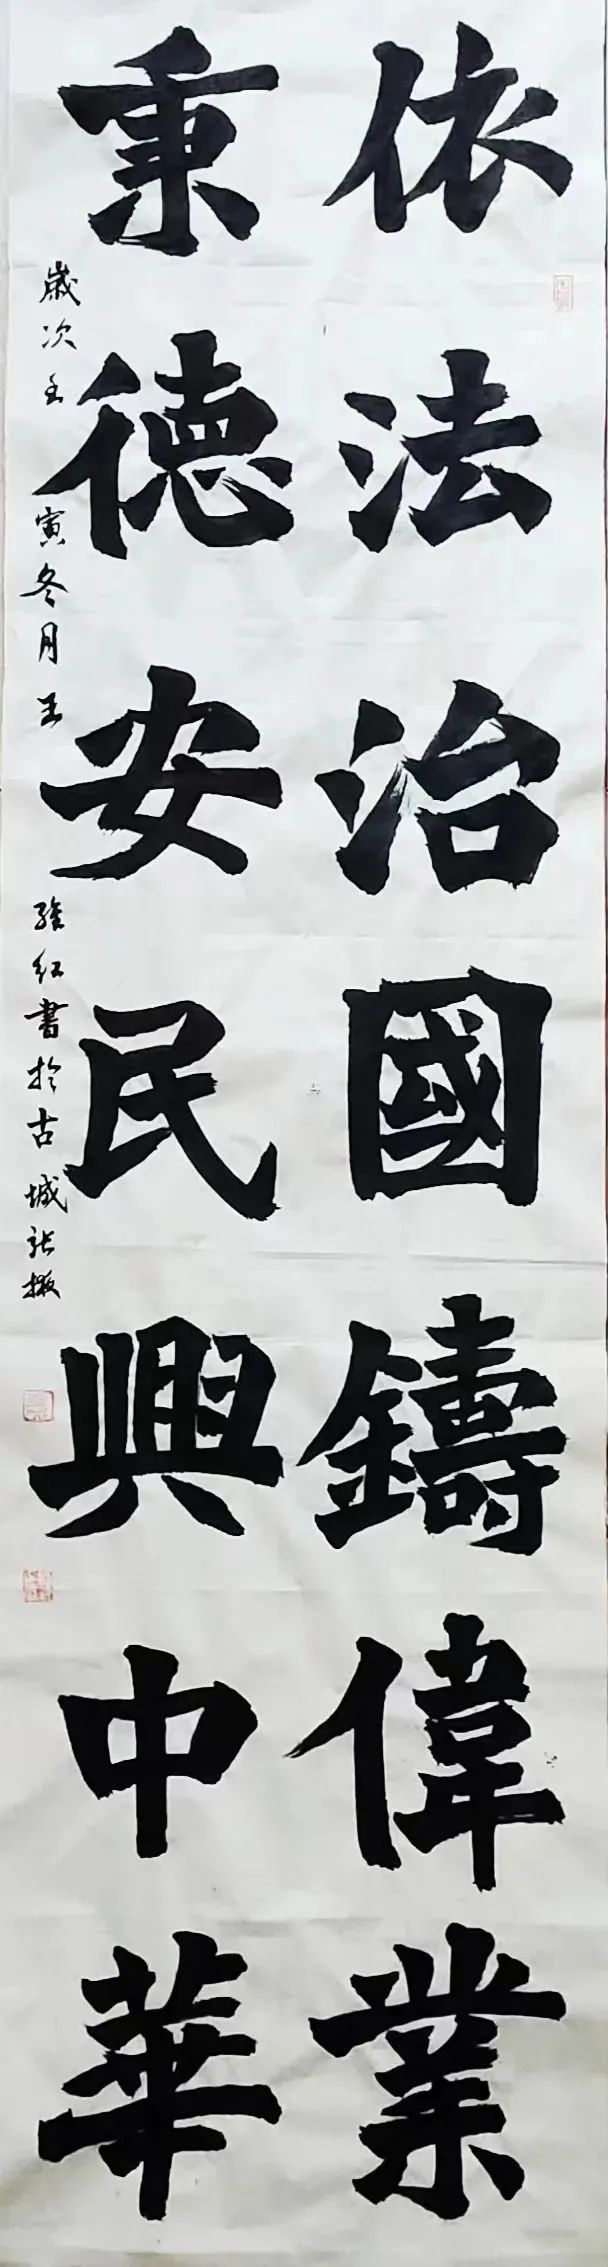 依法治國鑄偉業
秉德安民興中華
歲次壬寅冬月王維紅書於古城張掖